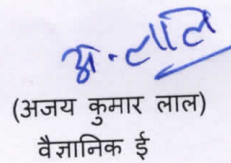 अ. लाल
(अजय कुमार लाल)
वैज्ञानिक ई